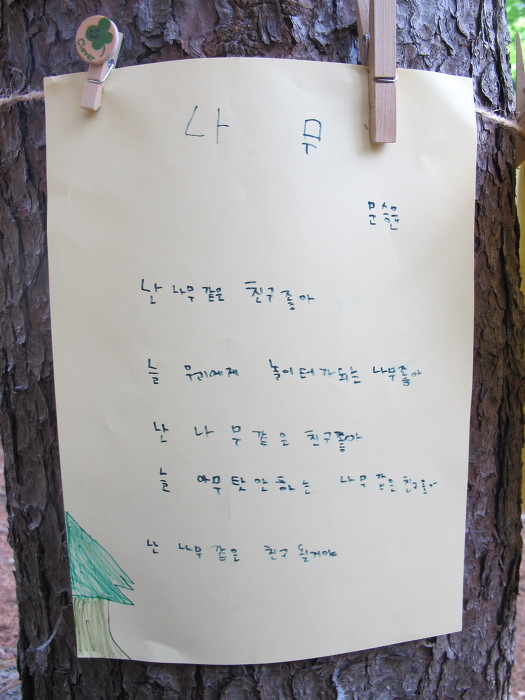 나 무
난 나무 같은 친구 좋아
늘 우리에게 놀이터가 되는 나무 좋아
난 나무 같은 친구 좋아
늘 아무 탓 안하는 나무 같은 친구 좋아
난 나무 같은 친구 될거야